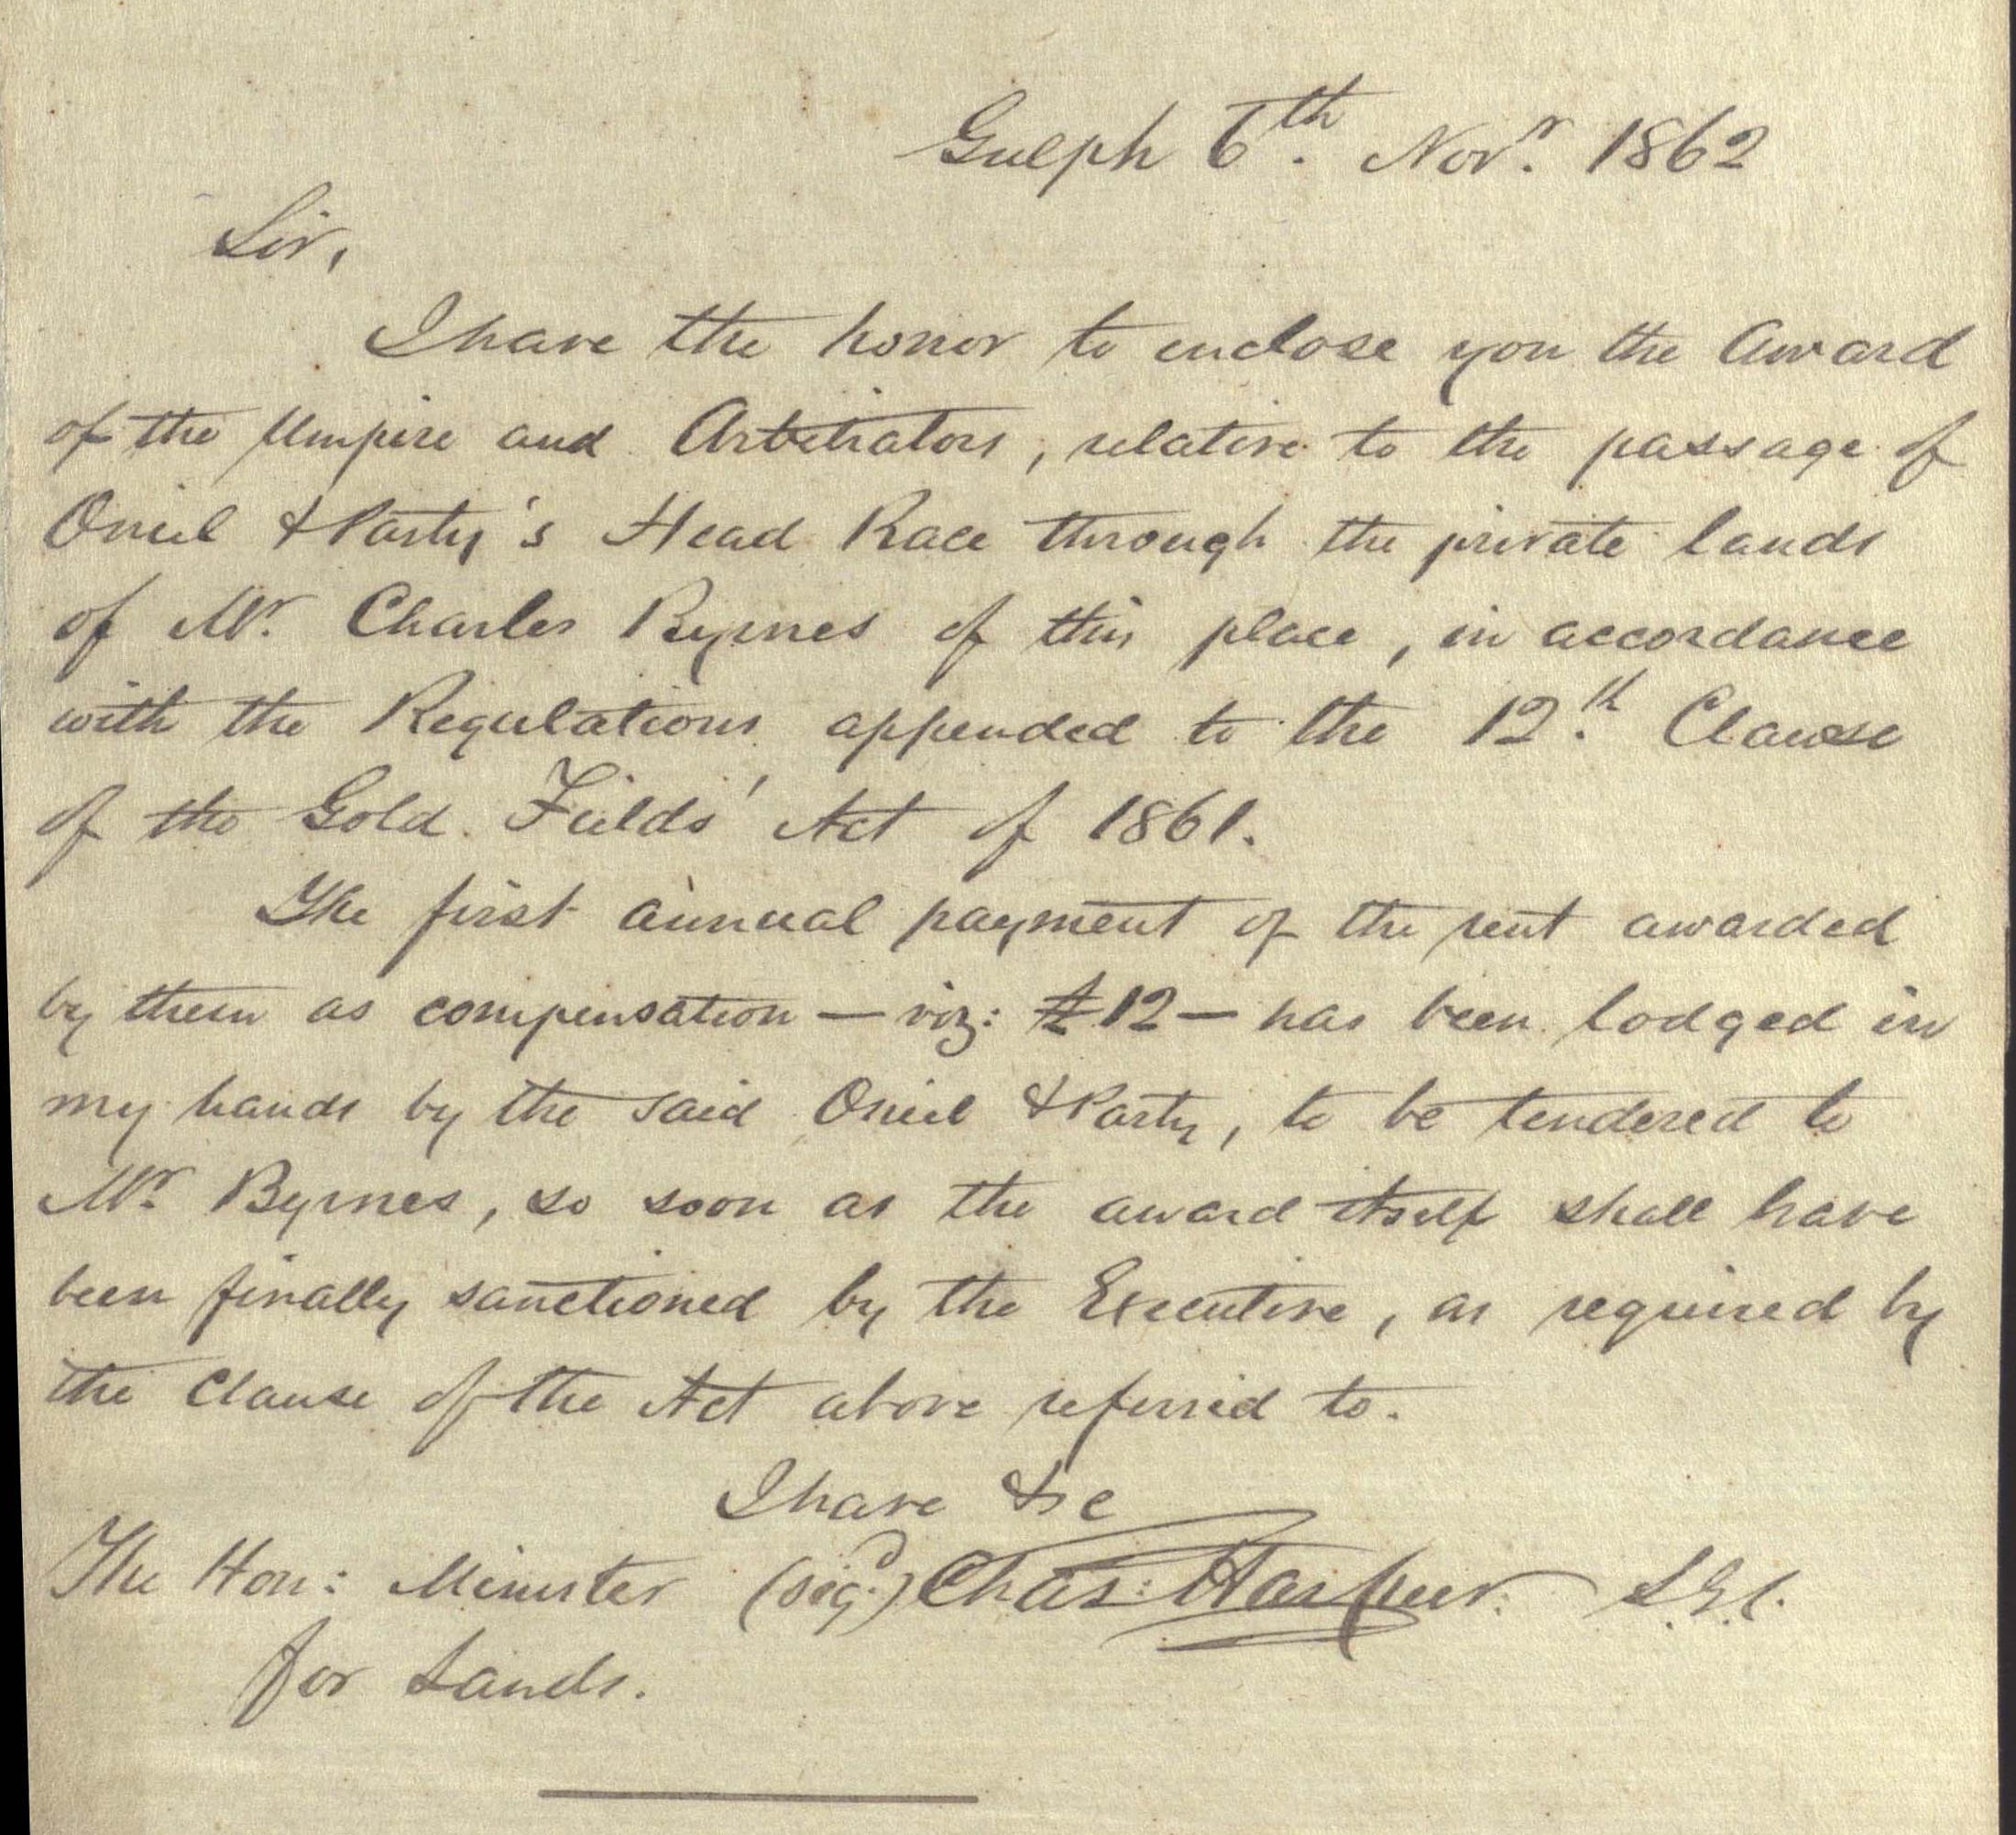 Gulph 6th. Novr. 1862
Sir,
I have the honor to enclose you the Award
of the Umpire and Arbitrators, relative to the passage of
Oniel & Party's Head Race through the private lands
of Mr. Charles Byrnes of this place, in accordance
with the Regulations appended to the 12th. Clause
of the Gold Fields' Act of 1861.
The first annual payment of the rent awarded
by them as compensation — viz: £12 — has been lodged in
my hands by the said Oniel & Party, to be tendered to
Mr. Byrnes, so soon as the award itself shall have
been finally sanctioned by the Executive, as required by
the Clause of the Act above referred to.
I have &c
The Hon: Minister (sigd.) Chas: Harpur
for Lands.